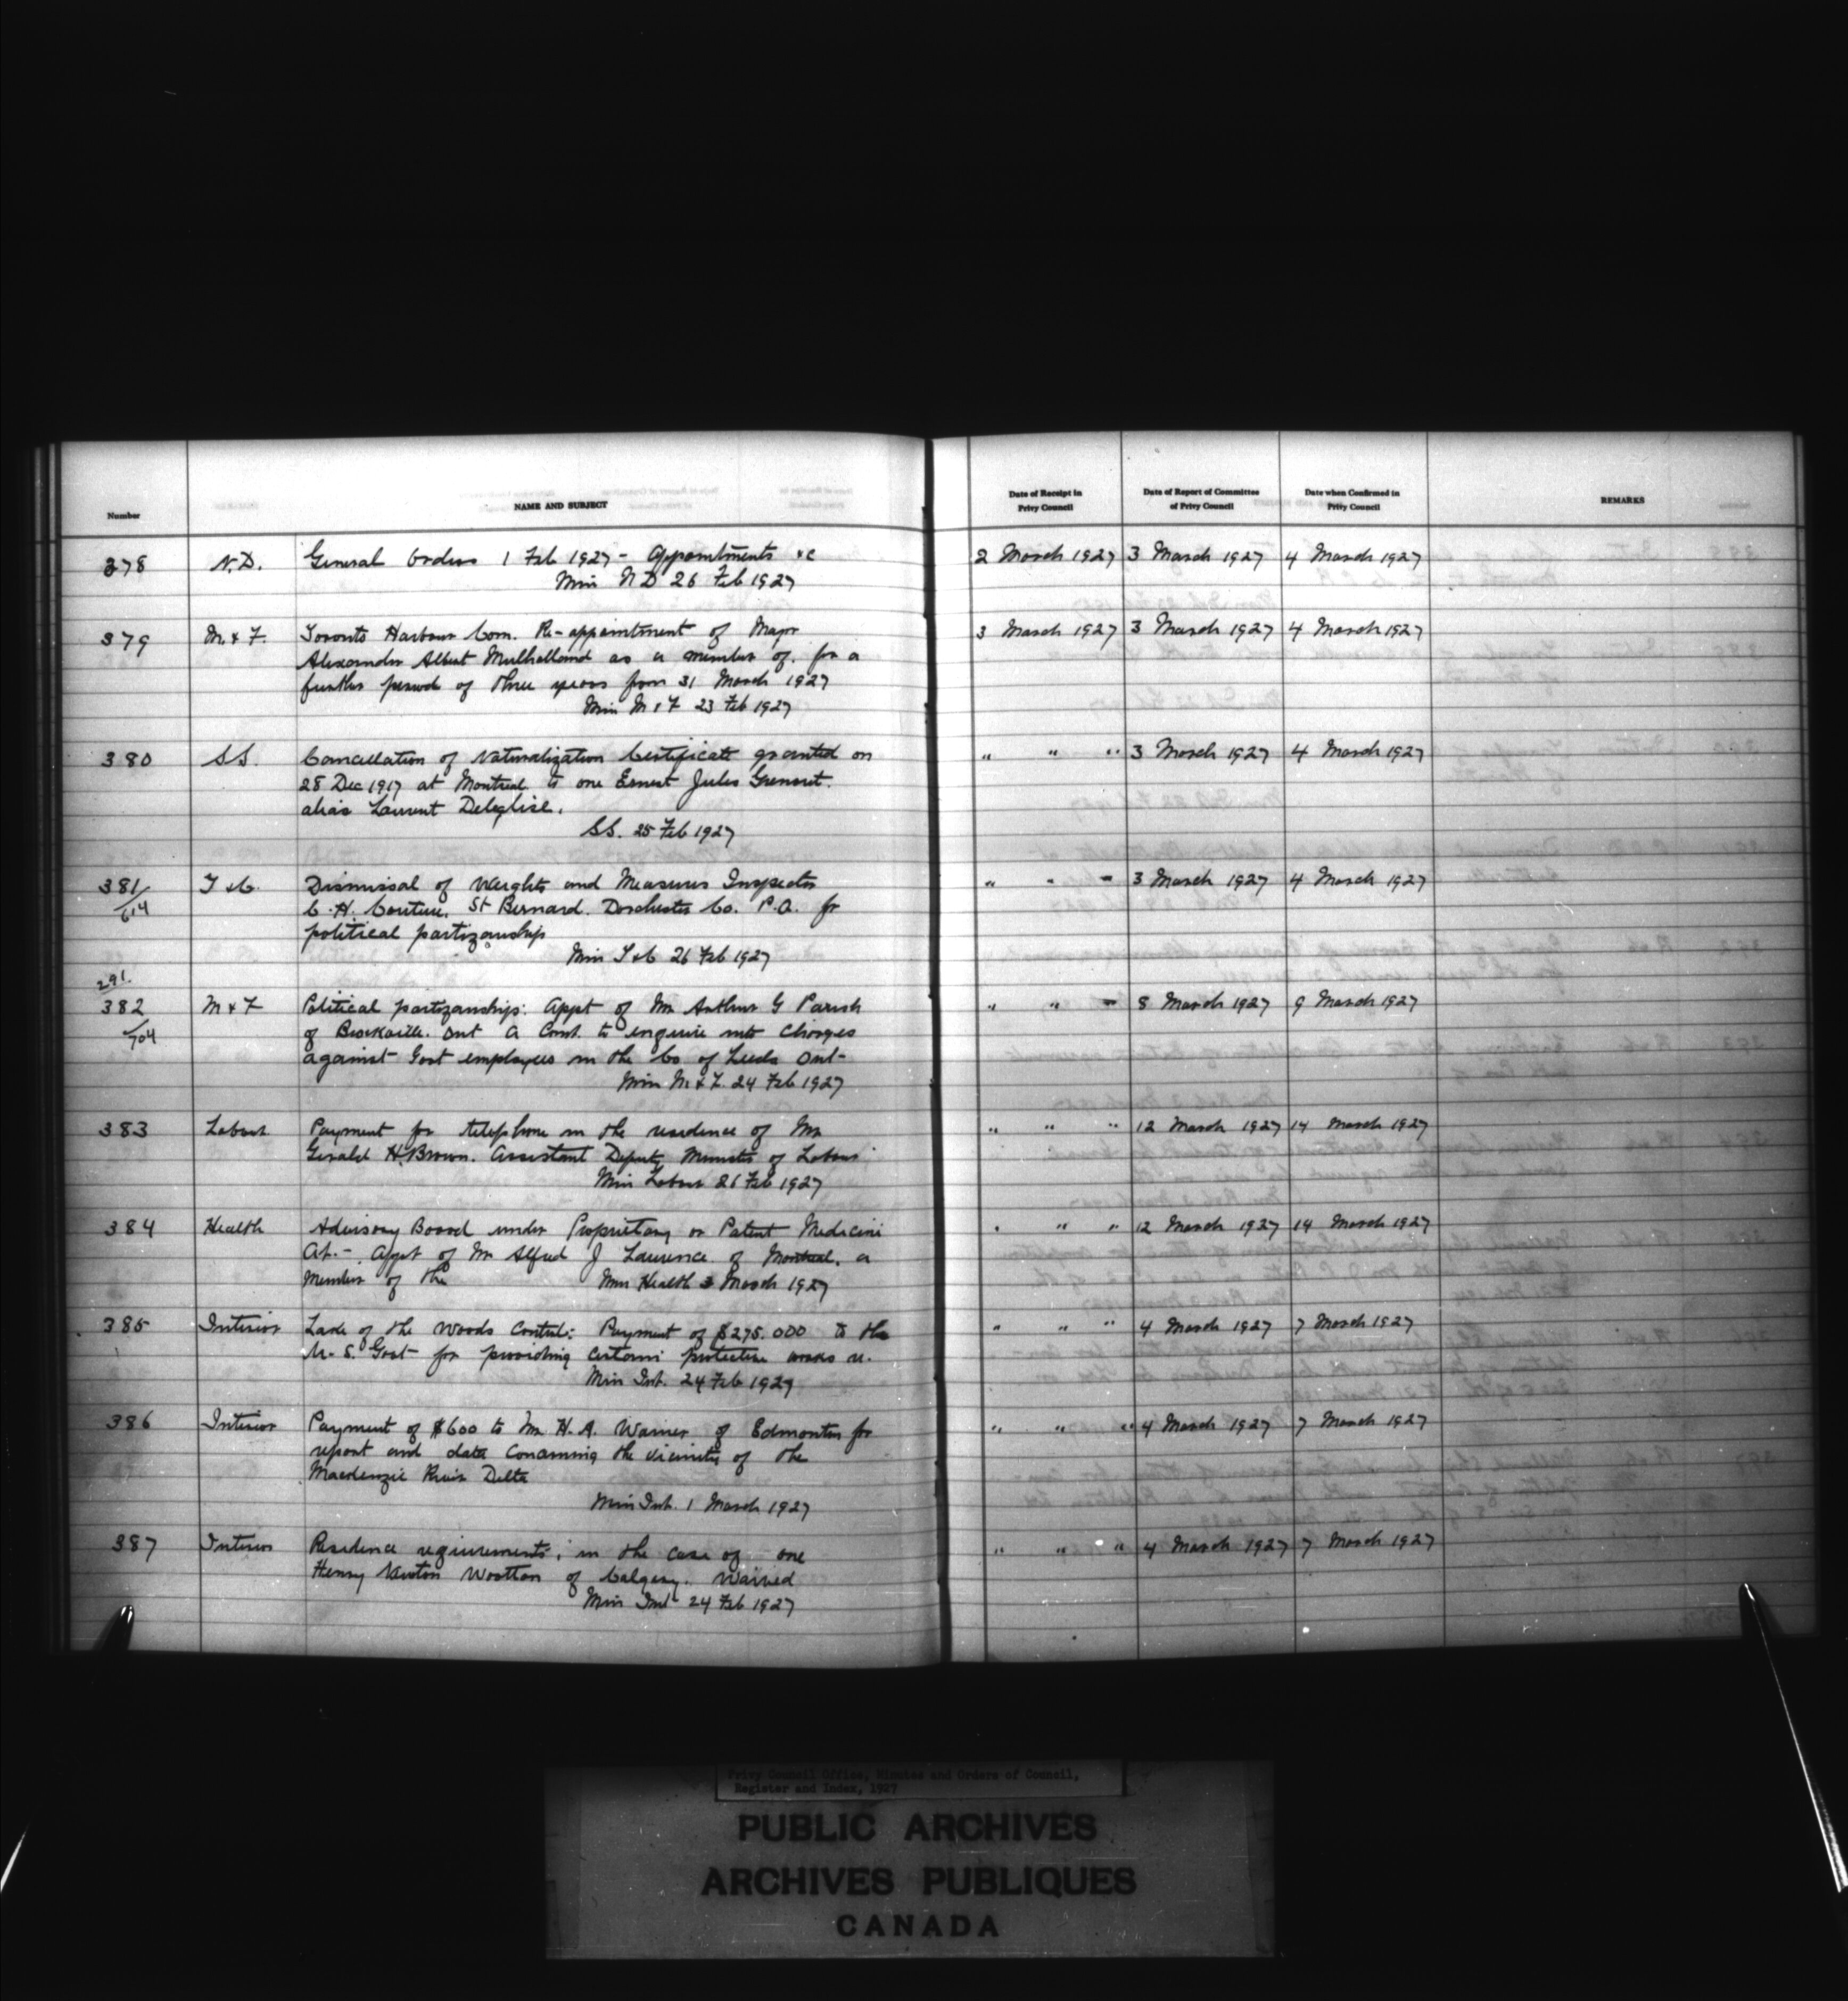 Number
NAME AND SUBJECT
Date of Receipt in Privy Council
Date of Report of Committee of Privy Council
Date when Confirmed in Privy Council
REMARKS
378 N.D. General Orders 1 Feb 1927 - Appointments &c 2 March 1927 3 March 1927 4 March 1927
Min N D 26 Feb 1927
379 M. & F. Toronto Harbour Com. Re-appointment of Major 3 March 1927 3 March 1927 4 March 1927
Alexander Albert Mulholland as a member of. for a
further period of three years from 31 March 1927
Min M & F 23 Feb 1927
380 S.S. Cancellation of Naturalization Certificate granted on " " " 3 March 1927 4 March 1927
28 Dec 1917 at Montreal to one Ernest Jules
alias Laurent Deleglise.
S.S. 25 Feb 1927
381/614 T & C. Dismissal of Weights and Measures Inspector " " " 3 March 1927 4 March 1927
C. H. Couture. St Bernard. Dorchester Co. P.Q. for
political partizanship
Min T & C 26 Feb 1927
291.
382/704 M & F Political partizanship. Appt of Mr Arthur G Parish " " " 8 March 1927 9 March 1927
of Brockville. Ont a Comr. to enquire into charges
against Govt employees in the Co of Leeds Ont-
Min M & F. 24 Feb 1927
383 Labour Payment for telephone in the residence of Mr " " " 12 March 1927 14 March 1927
Gerald H. Brown. Assistant Deputy Minister of Labour
Min Labour 26 Feb 1927
384 Health Advisory Board under Proprietary or Patent Medicine " " " 12 March 1927 14 March 1927
Act.- Appt of Mr Alfred J Laurence of Montreal. a
member of the Min Health 3 March 1927
385 Interior Lake of the Woods Control: Payment of $275.000 to the " " " 4 March 1927 7 March 1927
U. S. Govt for providing certain protective works re.
Min Int. 24 Feb 1927
386 Interior Payment of $600 to Mr H. A. Warner of Edmonton for " " " 4 March 1927 7 March 1927
report and data concerning the vicinity of the
Mackenzie River Delta
Min Int. 1 March 1927
387 Interior Residence requirements, in the case of one " " " 4 March 1927 7 March 1927
Henry Wootton of Calgary. Waived
Min Int 24 Feb 1927
Privy Council Office, Minutes and Orders of Council,
Register and Index, 1927
PUBLIC ARCHIVES
ARCHIVES PUBLIQUES
CANADA